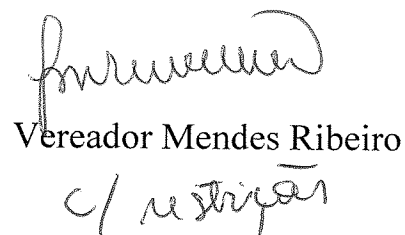 Vereador Mendes Ribeiro
c/ restrição